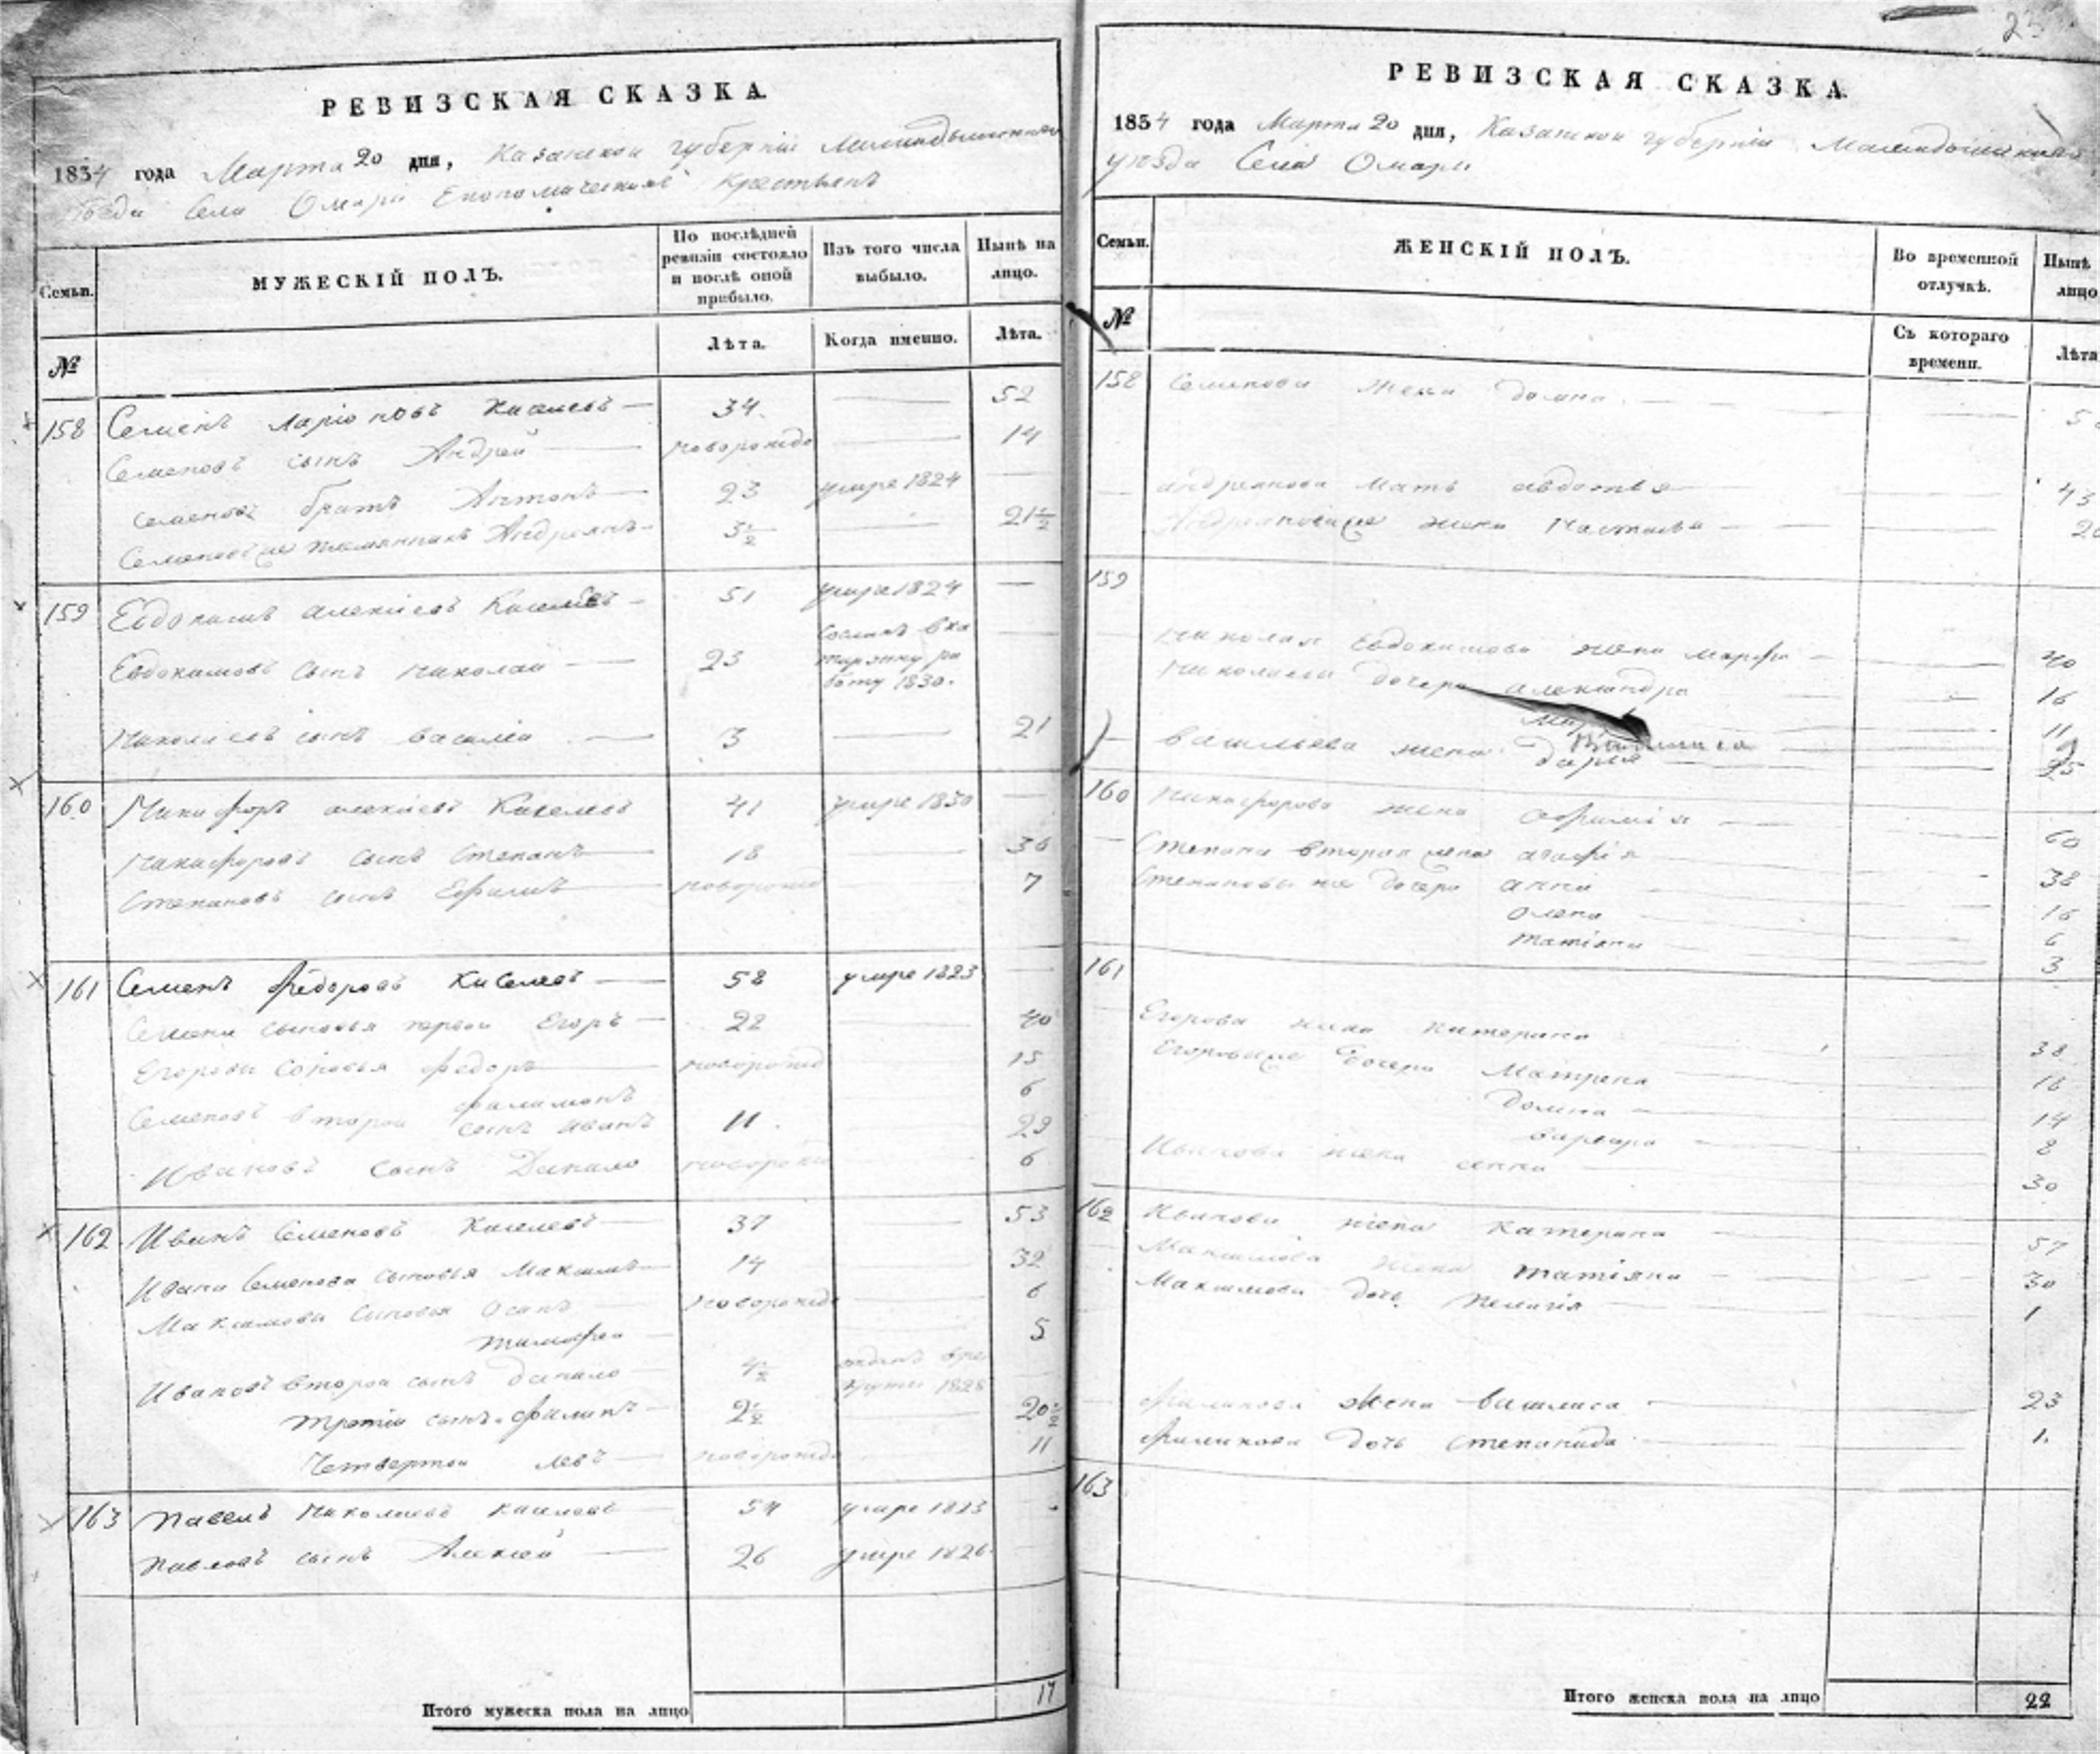 23
РЕВИЗСКАЯ СКАЗКА.
1834 года Марта 20 дня, Казанской губернии
Села Омари Економическихъ крестьянъ
Семьи.
МУЖЕСКІЙ ПОЛЪ.
По послѣдней ревизіи состояло и послѣ оной прибыло.
Изъ того числа выбыло.
Нынѣ на лицо.
№
Лѣта.
Когда именно.
Лѣта.
158 Семенъ Ларіоновъ Киселевъ 34. 52
Семеновъ сынъ Андрей новорожде 14
Семеновъ братъ Антонъ 23 умре 1824
Семеновъ же племянникъ Андреянъ 3½ 21½
159 Евдокимъ алексіевъ Киселевъ 51 умре 1824
Евдокимовъ сынъ николай 23 сосланъ вка
торжну ра
боту 1830.
Николаевъ сынъ василій 3 21
160 Никифоръ алексіевъ Киселевъ 41 умре 1830
Никифоровъ сынъ степанъ 18 36
Степановъ сынъ Ефимъ новорожд 7
161 Семенъ Федоровъ Киселевъ 58 умре 1823
Семена сыновья первой Егоръ 22 40
Егоровы соновья федоръ новорожд 15
филимонъ 6
Семеновъ второй сынъ иванъ 11. 29
Ивановъ сынъ Данило новорожд 6
162 Иванъ Семеновъ Киселевъ 37 53
Ивана Семенова сыновья Максимъ 14 32
Максимовы сыновья осипъ новорожде 6
тимофей 5
Ивановъ второй сынъ данило 4½ отданъ вре
круты 1828
третій сынъ филипъ 2½ 20½
Четвертой левъ новорожде 11
163 Павелъ Николаевъ киселевъ 54 умре 1823
Павловъ сынъ Алексей 26 умре 1826.
Итого мужеска пола на лицо 17
РЕВИЗСКАЯ СКАЗКА.
1834 года Марта 20 дня, Казанской губерніи
уезда Села Омари
Семьи.
ЖЕНСКІЙ ПОЛЪ.
Во временной отлучкѣ.
Нынѣ лицо
№
Съ котораго времени.
Лѣта
158 Семенова жена домна
андреянова мать авдотья 43
Андреянова же жена Настасья
159
николая Евдокимова жена марфа 40
николаевы дочери александра 16
11
васильева жена дарья 25
160 Никифорова жена афимія 60
Степана вторая жена агафія 38
Степановы же дочери анна 16
олена 6
татіяна 3
161
Егорова жена катерина 38
Егоровы же дочери Матрена 16
Домна 14
варвара 8
Иванова жена анна 30
162 Иванова жена катерина 57
Максимова жена татіяна 30
Максимова дочь пелагія 1
Филипова жена василиса 23
филипова дочь степанида 1.
163
Итого женска пола на лицо 22